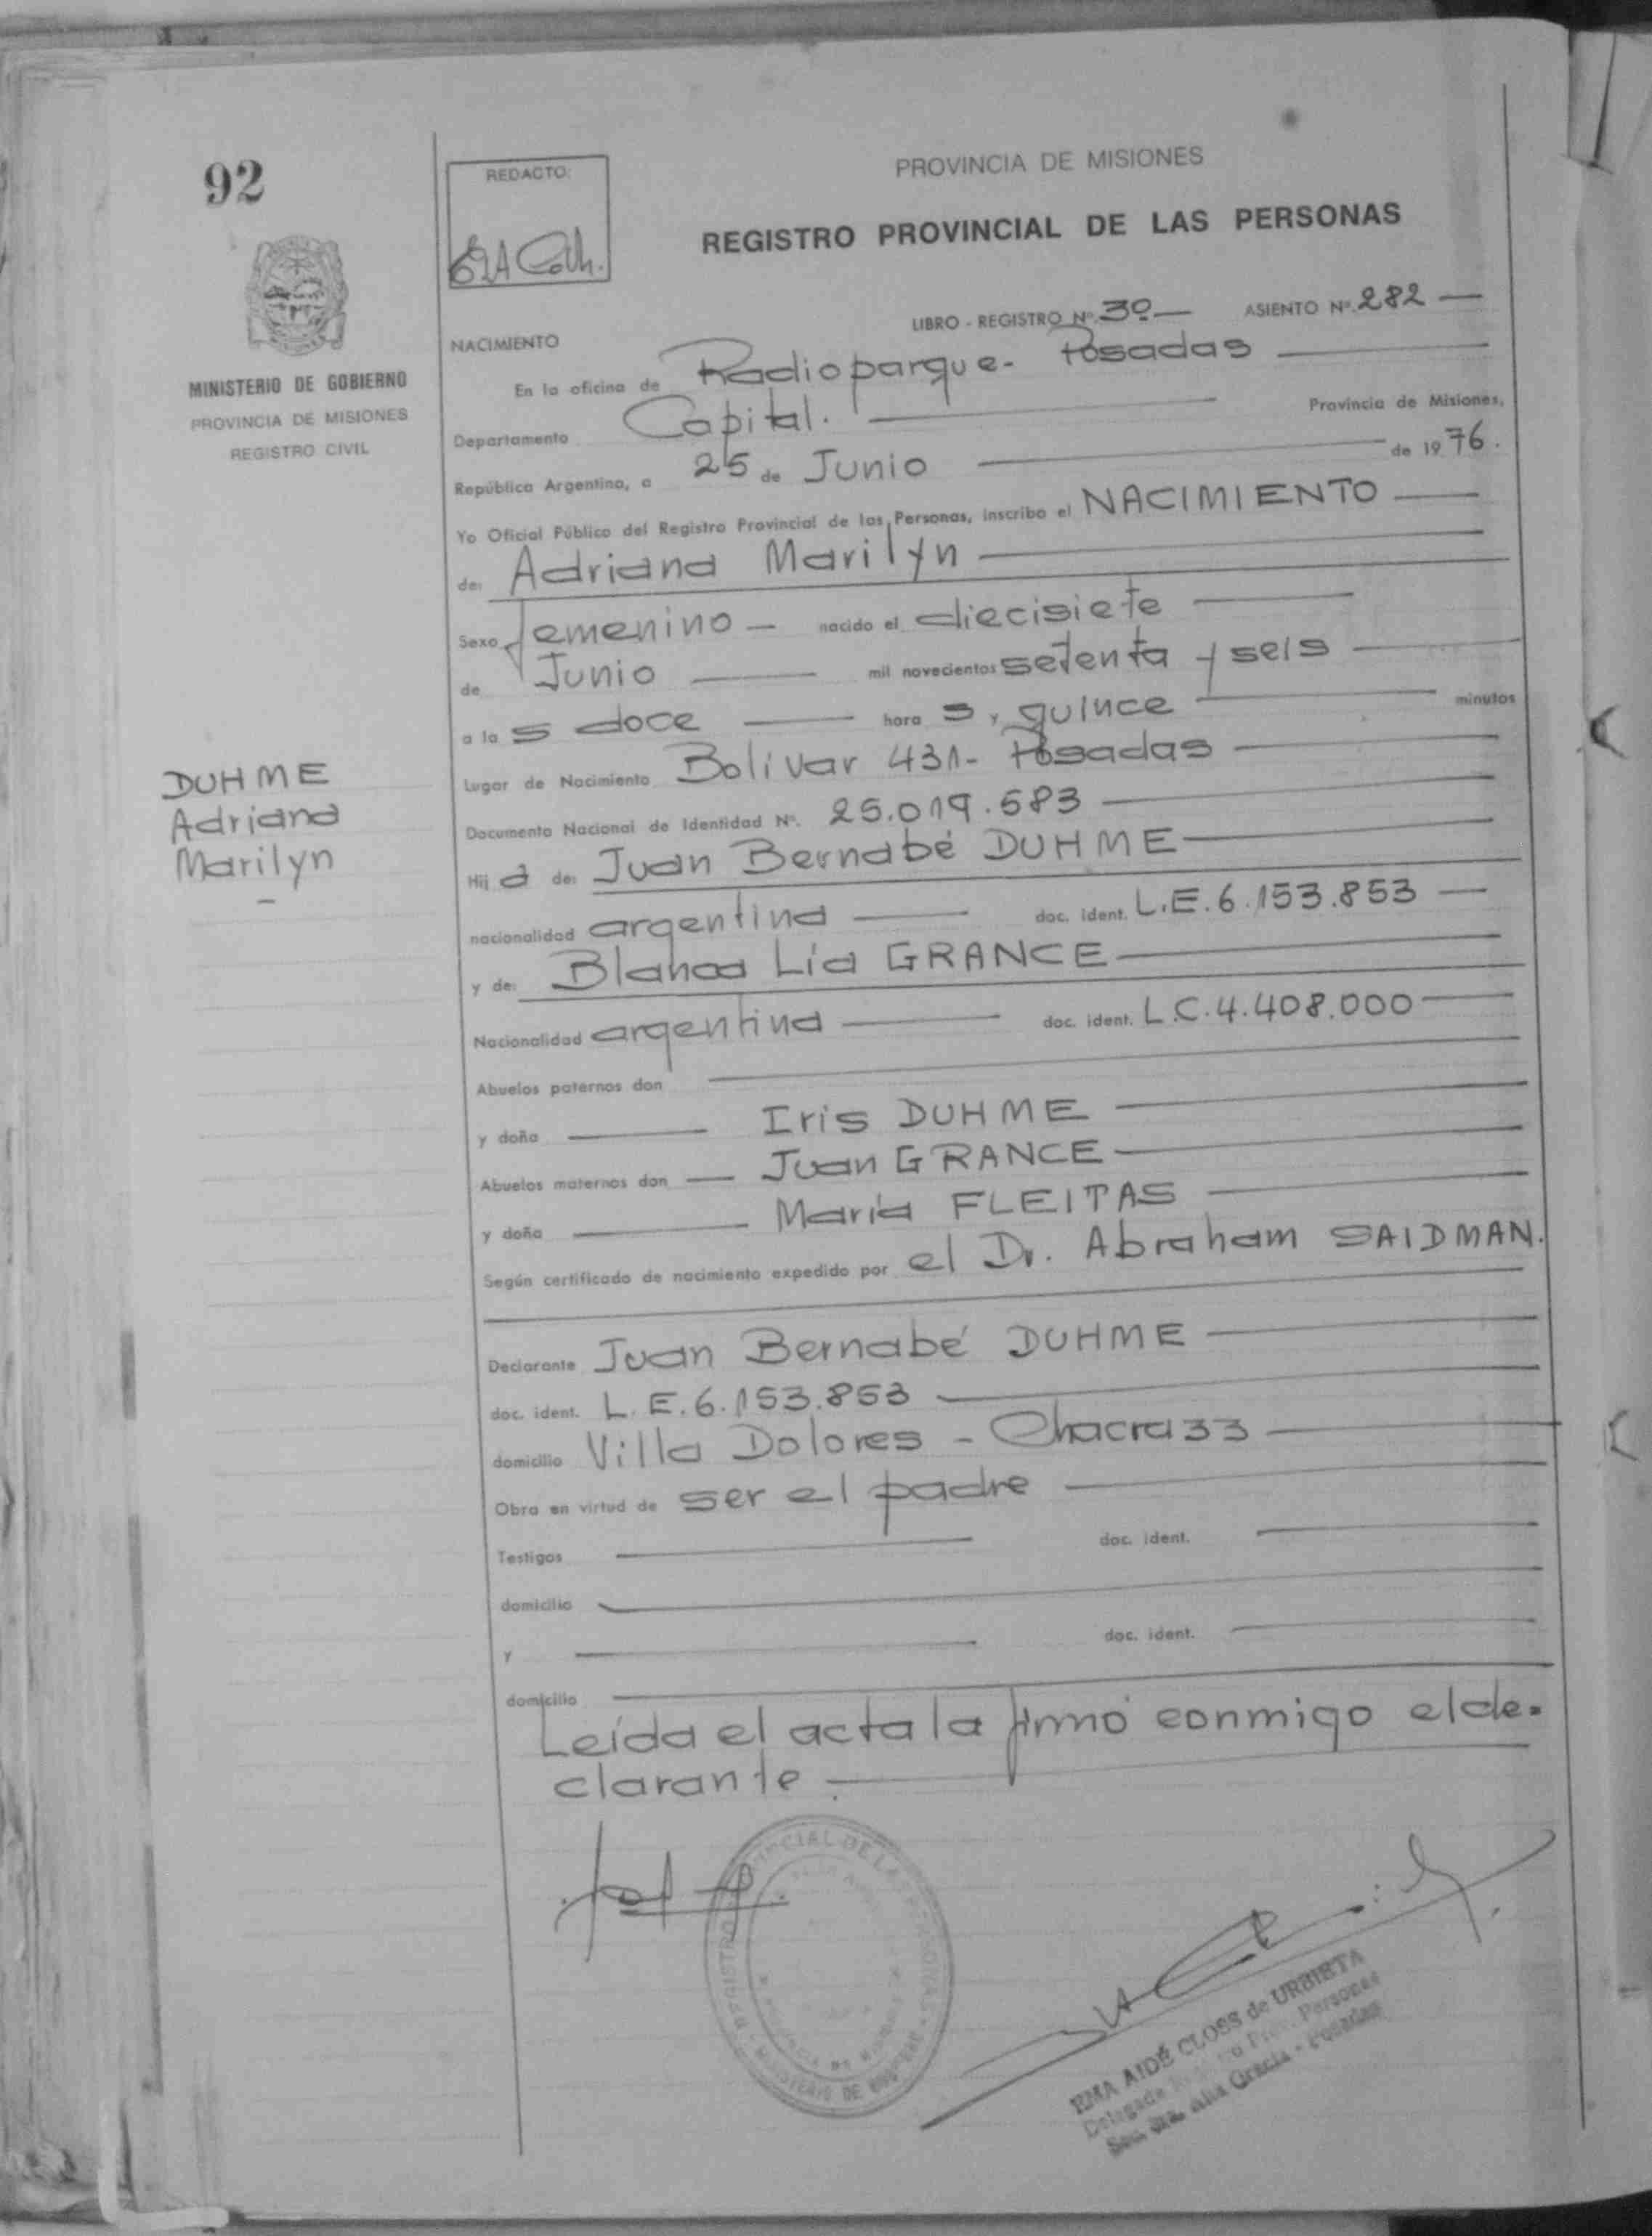 92
REDACTO:
PROVINCIA DE MISIONES
REGISTRO PROVINCIAL DE LAS PERSONAS
LIBRO - REGISTRO Nº. 3º — ASIENTO Nº. 282 —
NACIMIENTO
MINISTERIO DE GOBIERNO
PROVINCIA DE MISIONES
REGISTRO CIVIL
En la oficina de Radioparque - Posadas
Departamento Capital. Provincia de Misiones,
República Argentina, a 25 de Junio de 1976.
Yo Oficial Público del Registro Provincial de las Personas, inscribo el NACIMIENTO
de: Adriana Marilyn
Sexo femenino — nacido el diecisiete
de Junio mil novecientos setenta y seis
a la s doce hora s y quince minutos
Lugar de Nacimiento Bolivar 431 - Posadas
DUHME
Adriana
Marilyn
Documento Nacional de Identidad Nº. 25.019.583
Hij a de: Juan Bernabé DUHME
nacionalidad argentina doc. ident. L.E. 6.153.853
y de: Blanca Lía GRANCE
Nacionalidad argentina doc. ident. L.C. 4.408.000
Abuelos paternos don
y doña Iris DUHME
Abuelos maternos don Juan GRANCE
y doña María FLEITAS
Según certificado de nacimiento expedido por el Dr. Abraham SAIDMAN.
Declarante Juan Bernabé DUHME
doc. ident. L.E. 6.153.853
domicilio Villa Dolores - Chacra 33
Obra en virtud de ser el padre
Testigos doc. ident.
domicilio
y doc. ident.
domicilio
Leída el acta la firmó conmigo el de-
clarante.
REGISTRO PROVINCIAL DE LAS PERSONAS
MINISTERIO DE GOBIERNO
PROVINCIA DE MISIONES
EMA AIDÉ CLOSS de URBIETA
Delegada Prov. Personas
Sta. Alta Gracia - Posadas